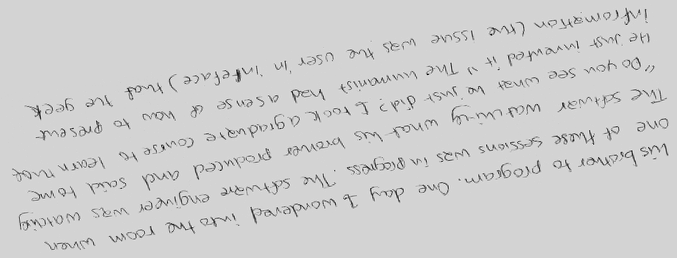 his brother to program. One day I wondered into the room when
one of these sessions was in progress. The software engineer was watching
The softwar watching what his brother produced and said to me
"Do you see what he just did? I took a graduate course to learn that
He just invented it." The humanist had a sense of how to present
infromation (the issue was the user in interface) that the geek